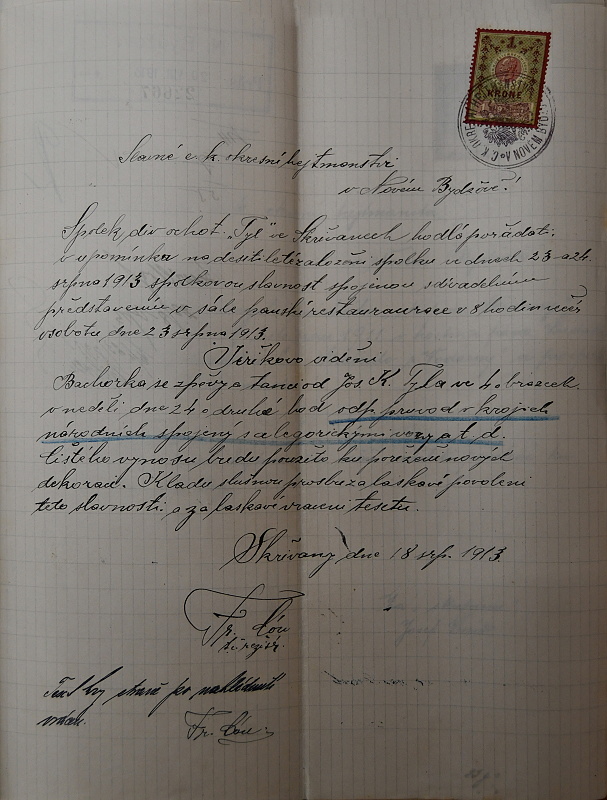 1
KRONE
Slavné c. k. okresní hejtmanství
v Novém Bydžově!
Spolek div. ochot. "Tyl" ve Skřivanech hodlá pořádati
v upomínku na desítileté založení spolku ve dnech 23 a 24.
srpna 1913 spolkovou slavnost spojenou s divadelním
představením v sále panské restauraurace v 8 hodin večer
v sobotu dne 23 srpna 1913.
Jiříkovo vidění
Bachorka se zpěvy a tanci od Jos. K. Tyla ve 4 obrazech.
v neděli dne 24 o druhé hod odp. průvod v krojích
národních spojený s alegorickými vozy a t. d.
čistého výnosu bude použito ku pořízení nových
dekorací. Kladu slušnou prosbu za laskavé povolení
této slavnosti a za laskavé vrácení textu.
Skřivany dne 18 srp. 1913.
Fr.
t. č. režisér.
Text by
Fr.